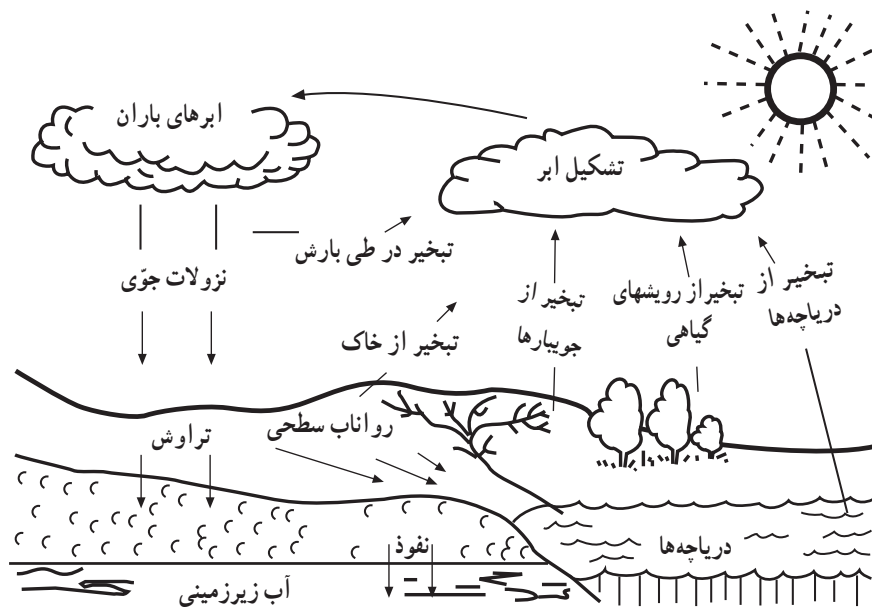 ابرهای باران
تشکیل ابر
تبخیر در طی بارش
نزولات جوّی
تبخیر از
جویبارها
تبخیر از رویشهای
گیاهی
تبخیر از
دریاچه‌ها
تبخیر از خاک
تراوش
رواناب سطحی
نفوذ
دریاچه‌ها
آب زیرزمینی